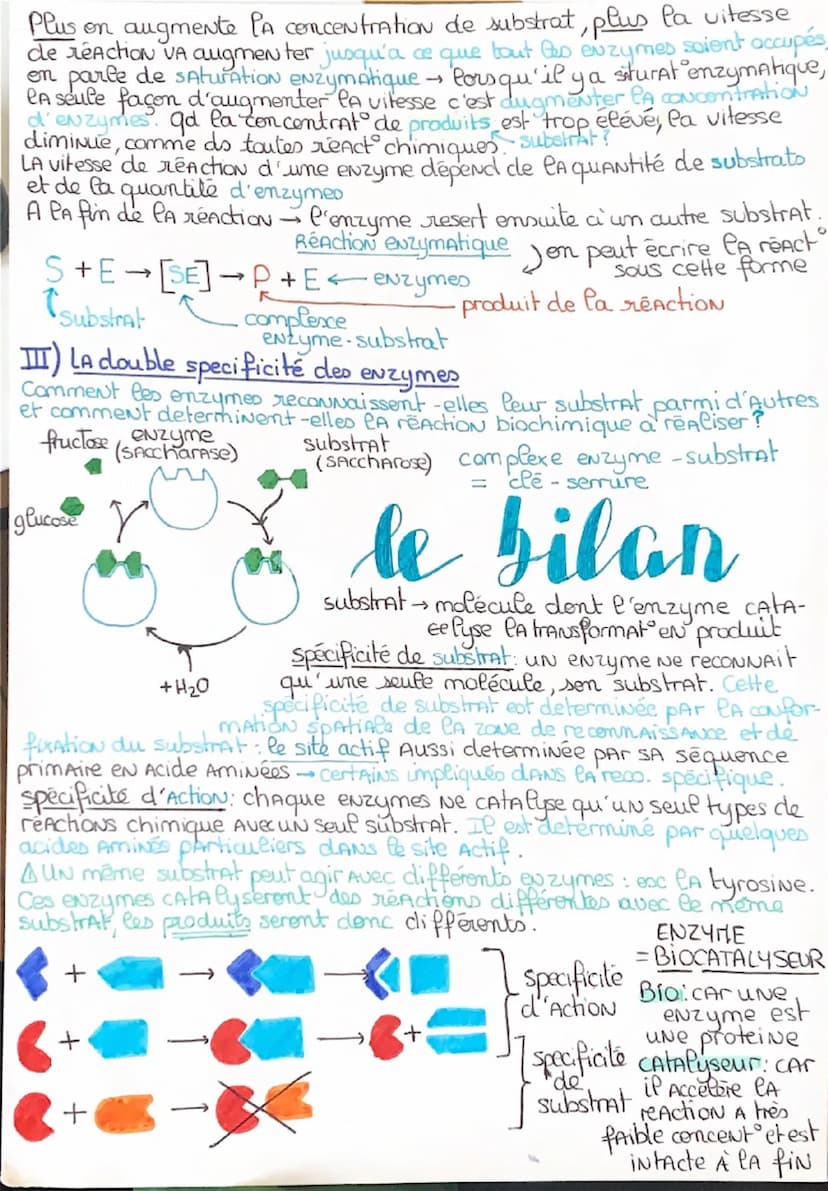 Plus on augmente la concentration de substrat, plus la vitesse
de réaction va augmenter jusqu'a ce que tout les enzymes soient occupés,
on parle de saturation enzymatique → lorsqu'il y a siturat° enzymatique,
la seule façon d'augmenter la vitesse c'est augmenter la concentration
d'enzymes. qd la concentrat° de produits est trop élévé, la vitesse
diminue, comme ds toutes réact° chimiques. substrat?
La vitesse de réaction d'une enzyme dépend de la quantité de substrats
et de la quantité d'enzymes
A la fin de la réaction → l'enzyme resert ensuite à un autre substrat.
Réaction enzymatique
on peut écrire la réact°
sous cette forme
S + E → [SE] → P + E ← enzymes
produit de la réaction
substrat
complexe
enzyme-substrat
III) La double specificité des enzymes
Comment les enzymes reconnaissent-elles leur substrat parmi d'autres
et comment determinent-elles la réaction biochimique à réaliser?
fructose
enzyme
(saccharase)
substrat
(saccharose)
complexe enzyme-substrat
= clé-serrure
glucose
le bilan
+H₂O
substrat → molécule dont l'enzyme cata-
lyse la transformat° en produit
spécificité de substrat: un enzyme ne reconnait
qu'une seule molécule, son substrat. Cette
spécificité de substrat est determinée par la confor-
mation spatiale de la zone de reconnaissance et de
fixation du substrat: le site actif aussi determinée par sa séquence
primaire en acide aminées → certains impliqués dans la reco. spécifique.
spécificité d'action: chaque enzymes ne catalyse qu'un seul types de
réactions chimique avec un seul substrat. Il est determiné par quelques
acides aminés particuliers dans le site actif.
⚠ Un même substrat peut agir avec différents enzymes: ex la tyrosine.
Ces enzymes catalyseront des réactions différentes avec le même
substrat, les produits seront donc différents.
+ → →
specificité
d'action
+ → → +
specificité
de
substrat
+ →
ENZYME
= BIOCATALYSEUR
Bio: car une
enzyme est
une proteine
catalyseur: car
il accélère la
reaction a très
faible concent° et est
intacte à la fin